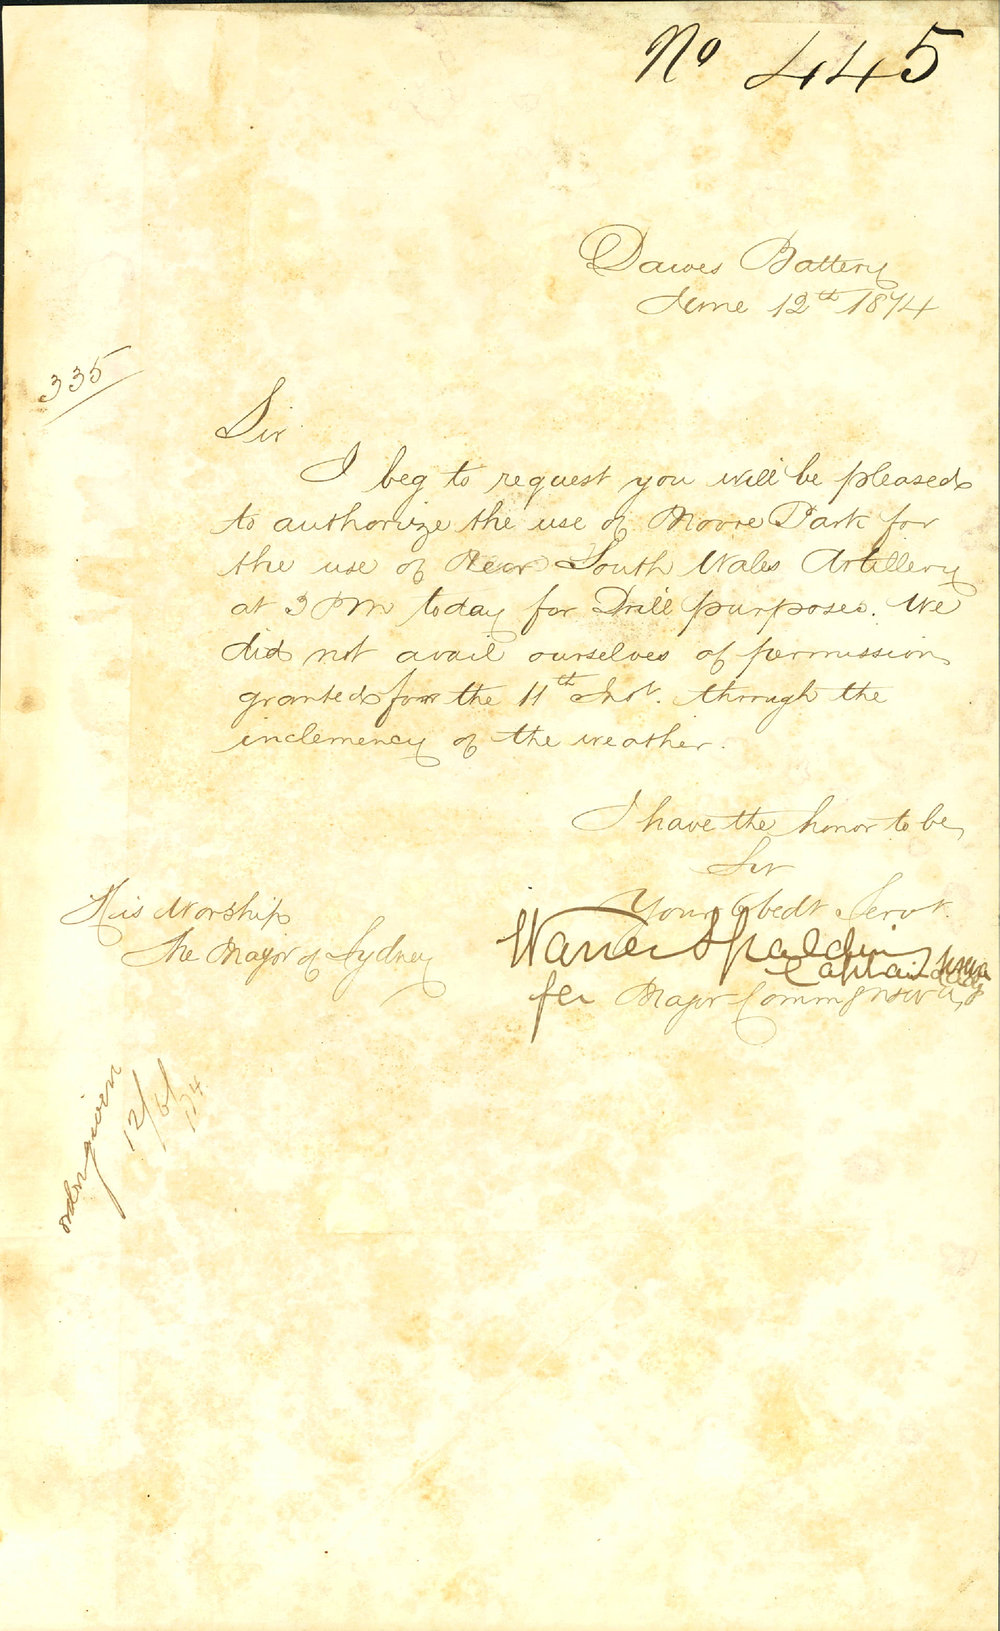 No 445
Dawes Battery
June 12th 1874
335
Sir
I beg to request you will be pleased
to authorize the use of Moore Park for
the use of New South Wales Artillery
at 3 PM today for Drill purposes. We
did not avail ourselves of permission
granted for the 11th Inst. through the
inclemency of the weather.
I have the honor to be
Sir
Your Obedt Servt.
His Worship
The Mayor of Sydney
Warner Spalding
Captain
for Major Commg N S W A
order given
12/6/74